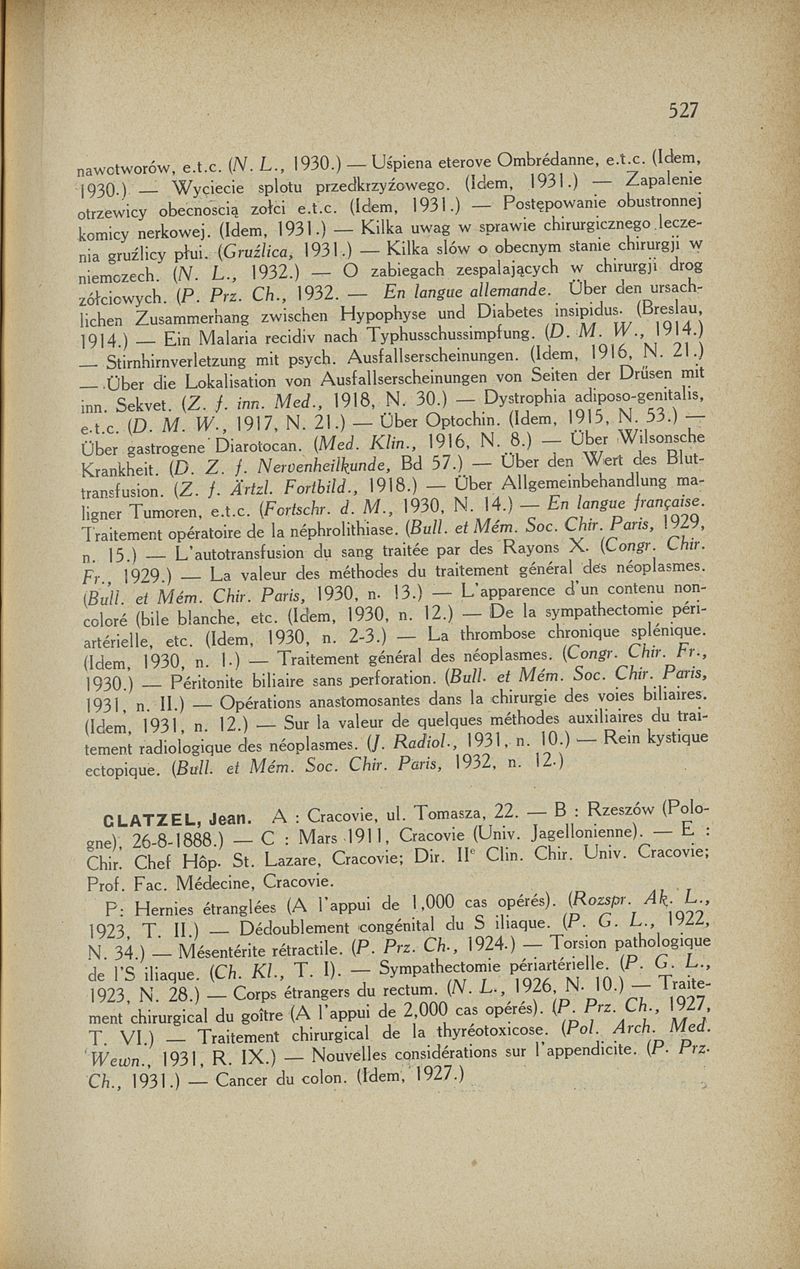 527
nawotworów, e.t.c. (N. L., 1930.) — Uśpiena eterove Ombrédanne, e.t.c. (Idem,
1930.) — Wycięcie splotu przedkrzyżowego. (Idem, 1931.) — Zapalenie
otrzewicy obecnoscią zołci e.t.c. (Idem, 1931.) — Postępowanie obustronnej
komicy nerkowej. (Idem, 1931.) — Kilka uwag w sprawie chirurgicznego lecze-
nia gruźlicy płui. (Gruźlica, 1931.) — Kilka slów o obecnym stanie chirurgji w
niemczech. (N. L., 1932.) — O zabiegach zespalających w chirurgji drog
zółciowych. (P. Prz. Ch., 1932. — En langue allemande. Über den ursach-
lichen Zusammerhang zwischen Hypophyse und Diabetes insipidus. (Breslau,
1914.) — Ein Malaria recidiv nach Typhusschussimpfung. (D. M. W., 1914.)
— Stirnhirnverletzung mit psych. Ausfallserscheinungen. (Idem, 1916, N. 21.)
— Über die Lokalisation von Ausfallserscheinungen von Seiten der Drüsen mit
inn. Sekvet. (Z. f. inn. Med., 1918, N. 30.) — Dystrophia adiposo-genitalis,
e.t.c. (D. M. W., 1917, N. 21.) — Über Optochin. (Idem, 1915, N. 53.) —
Über gastrogene Diarotocan. (Med. Klin., 1916, N. 8.) — Über Wilsonsche
Krankheit. (D. Z. f. Nervenheilkunde, Bd 57.) — Über den Wert des Blut-
transfusion. (Z. f. Ärtzl. Fortbild., 1918.) — Über Allgemeinbehandlung ma-
ligner Tumoren, e.t.c. (Fortschr. d. M., 1930, N. 14.) — En langue française.
Traitement opératoire de la néphrolithiase. (Bull. et Mém. Soc. Chir. Paris, 1929,
n. 15.) — L'autotransfusion du sang traitée par des Rayons X. (Congr. Chir.
Fr., 1929.) — La valeur des méthodes du traitement général des néoplasmes.
(Bull. et Mém. Chir. Paris, 1930, n. 13.) — L'apparence d'un contenu non-
coloré (bile blanche, etc. (Idem, 1930, n. 12.) — De la sympathectomie péri-
artérielle, etc. (Idem, 1930, n. 2-3.) — La thrombose chronique splénique.
(Idem, 1930, n. 1.) — Traitement général des néoplasmes. (Congr. Chir. Fr.,
1930.) — Péritonite biliaire sans perforation. (Bull. et Mém. Soc. Chir. Paris,
1931, n. II.) — Opérations anastomosantes dans la chirurgie des voies biliaires.
(Idem, 1931, n. 12.) — Sur la valeur de quelques méthodes auxiliaires du trai-
tement radiologique des néoplasmes. (J. Radiol., 1931, n. 10.) — Rein kystique
ectopique. (Bull. et Mém. Soc. Chir. Paris, 1932, n. 12.)
GLATZEL, Jean. A : Cracovie, ul. Tomasza, 22. — B : Rzeszów (Polo-
gne), 26-8-1888.) — C : Mars 1911, Cracovie (Univ. Jagellonienne). — E :
Chir. Chef Hôp. St. Lazare, Cracovie; Dir. IIe Clin. Chir. Univ. Cracovie;
Prof. Fac. Médecine, Cracovie.
P: Hernies étranglées (A l'appui de 1,000 cas opérés). (Rozspr. Ak. L.,
1923, T. II.) — Dédoublement congénital du S iliaque. (P. G. L., 1922,
N. 34.) — Mésentérite rétractile. (P. Prz. Ch., 1924.) — Torsion pathologique
de l'S iliaque. (Ch. Kl., T. I). — Sympathectomie périartérielle. (P. G. L.,
1923, N. 28.) — Corps étrangers du rectum. (N. L., 1926, N. 10.) — Traite-
ment chirurgical du goître (A l'appui de 2,000 cas opérés). (P. Prz. Ch., 1927,
T. VI.) — Traitement chirurgical de la thyréotoxicose. (Pol. Arch. Med.
Wewn., 1931, R. IX.) — Nouvelles considérations sur l'appendicite. (P. Prz.
Ch., 1931.) — Cancer du colon. (Idem, 1927.)